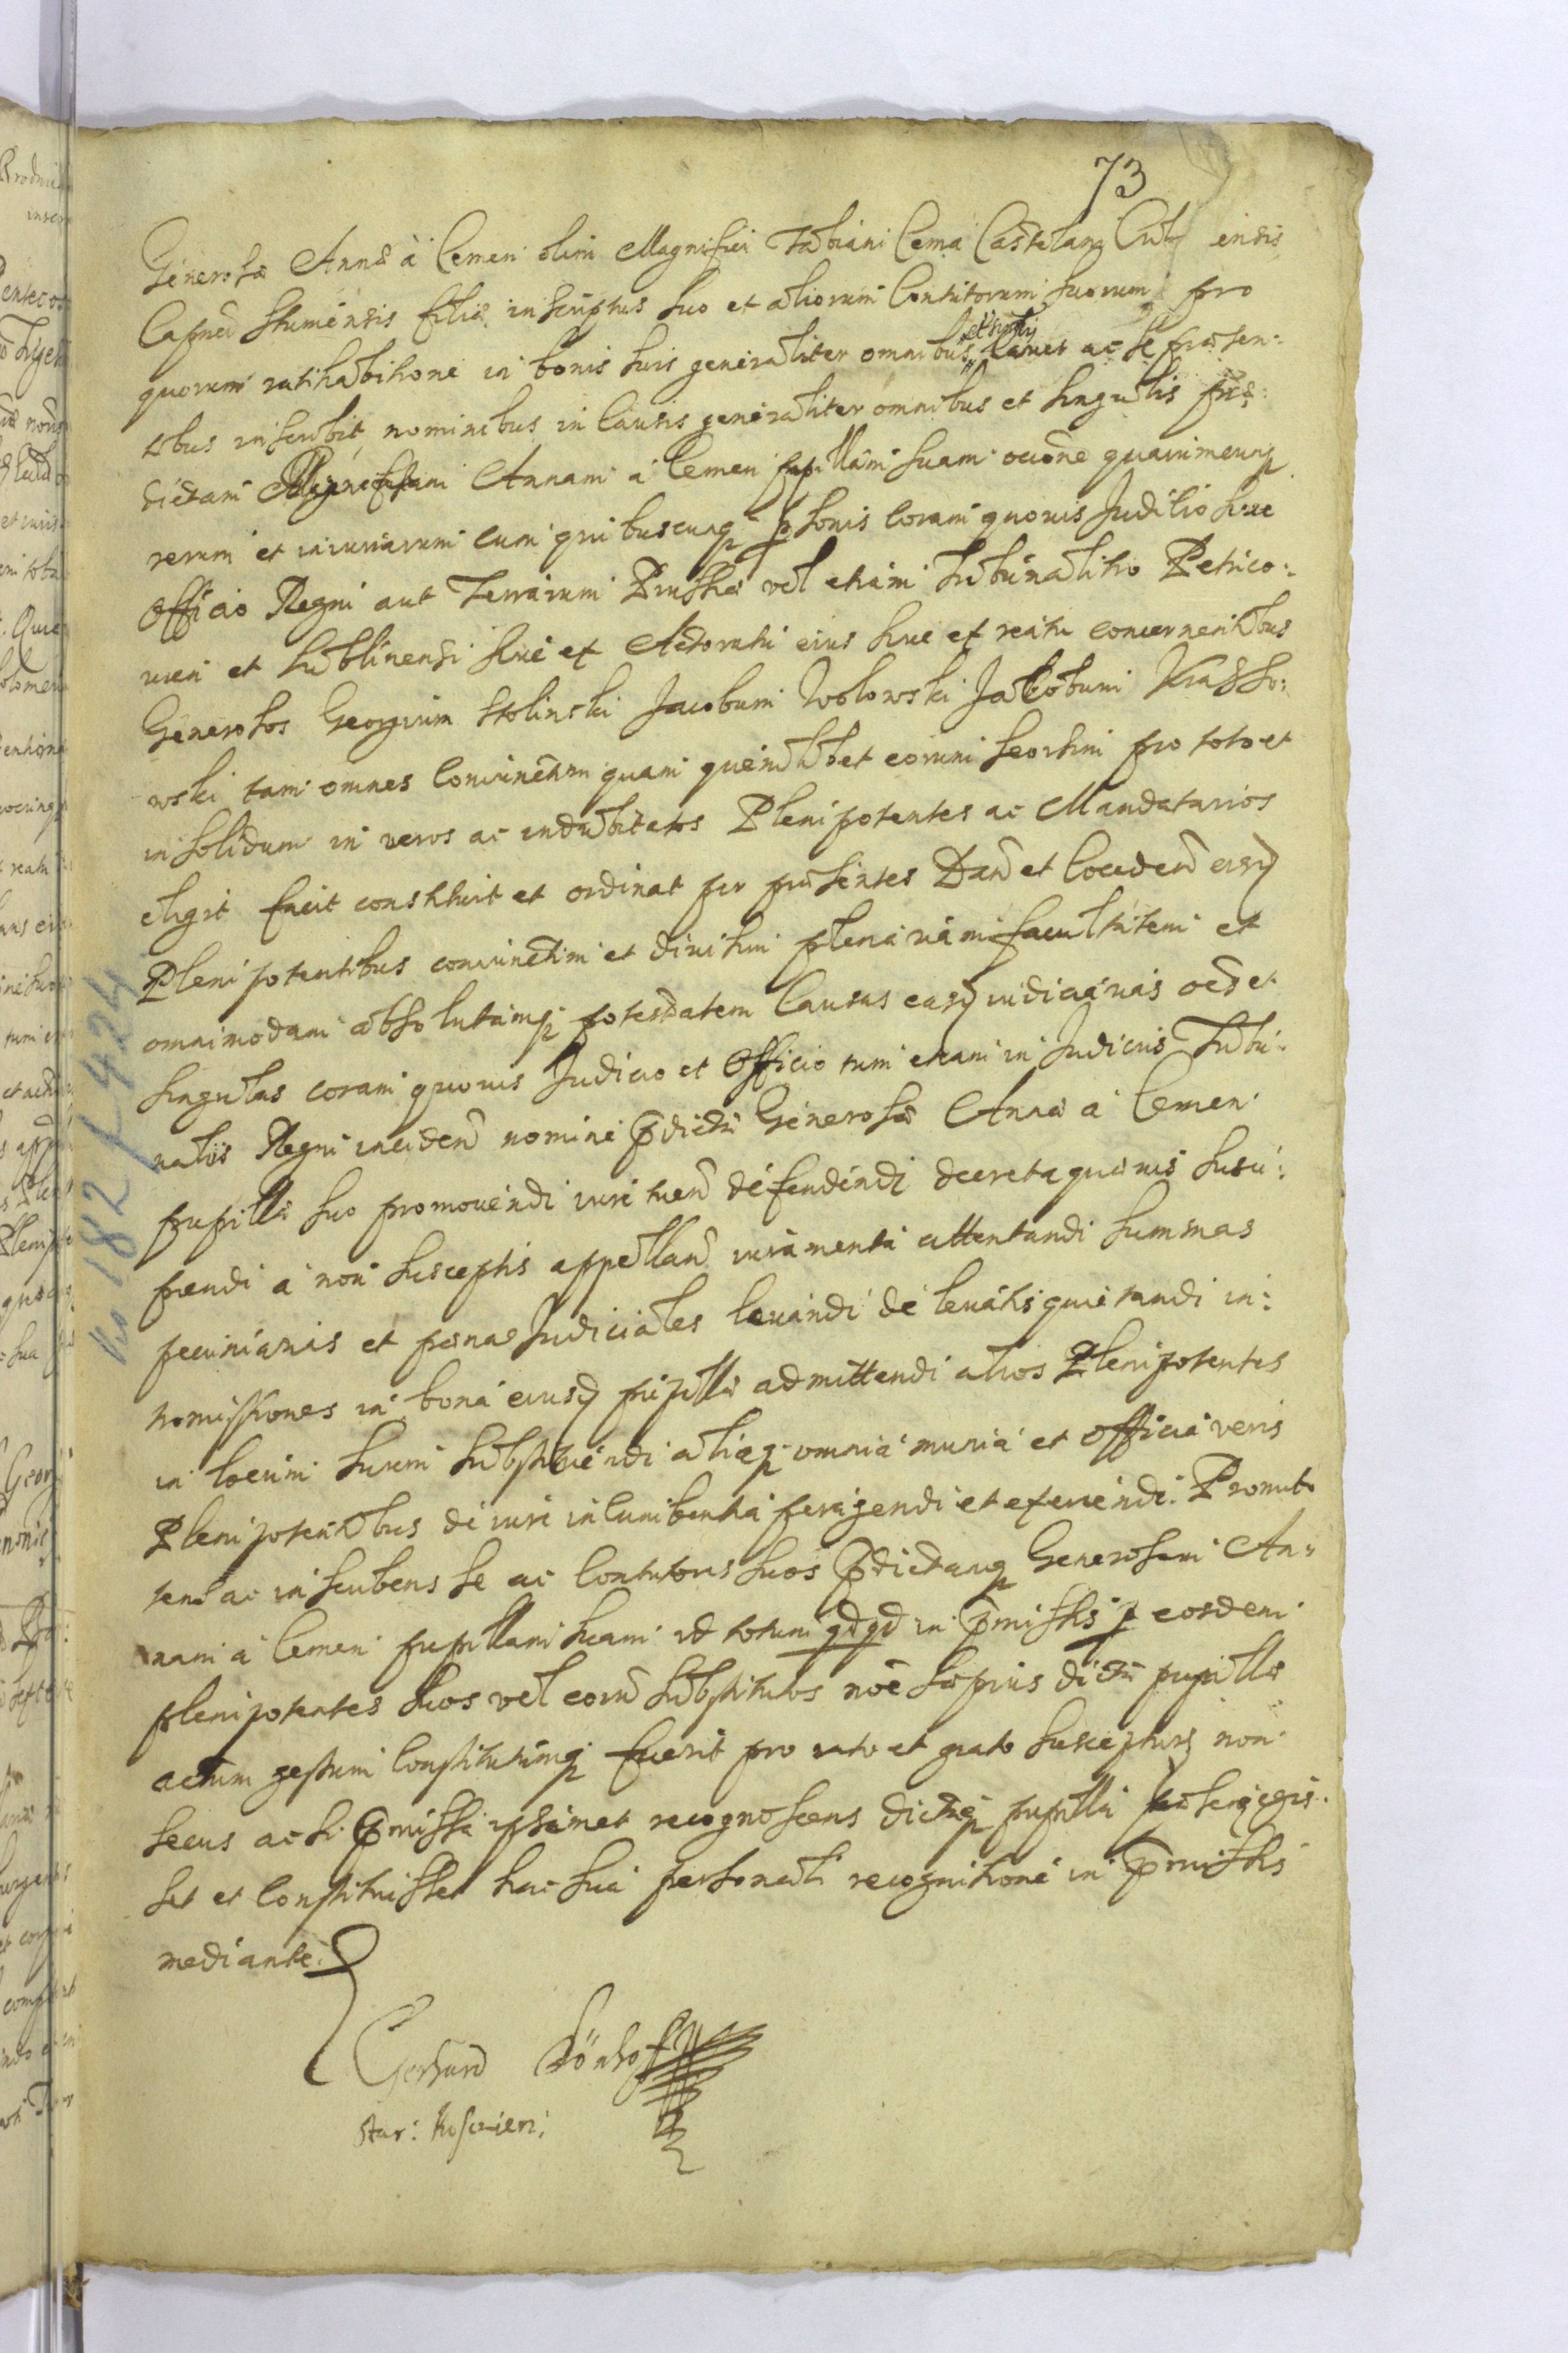 73
Generosæ Annæ à Cemen olim Magnifici Fabiani Cema Castelani Culmensis
Capnei Stumensis filiæ inscriptus suo et aliorum Contutorum suorum pro
quorum ratihabitione in bonis suis generaliter omnibus et singulis cauet ac se præsen:
tibus inscribit nominibus in Causis generaliter omnibus et singulis præ:
dictam Generosam Annam à Cemen pupillam suam occõne quarumcunq
rerum et iniuriarum cum quibuscunq psonis coram quouis Juditio siue
Officio Regni aut Terrarum Prussiæ vel etiam Tribunalitio Petrico:
uien et Lublinensi siue ex Actoratu eius siue ex reatu concernentibus
Generosos Georgium Stolinski Jacobum Wolowski Jacobum Krasso:
wski tam omnes coniunctim quam quemlibet eorum seorsim pro toto et
in solidum in veros ac indubitatos Plenipotentes ac Mandatarios
eligit facit constituit et ordinat per præsentes Dan et Conceden eisd
Plenipotentibus coniunctim et diuisim plenariam facultatem et
omnimodam absolutamq potestatem Causas easd iudiciarias oẽs et
singulas coram quouis Judicio et Officio tum etiam in Judicijs Tribu:
nalijs Regni inciden nomine p̃dictæ Generosæ Annæ à Cemen
pupillæ suo promouendi iuri tuen defendendi decreta quæuis susci:
piendi a non susceptis appellan iuramenta attentandi summas
pecuniarias et pœnas Judiciales leuandi de leuatis quietandi in:
tromissiones in bona eiusd pupillæ admittendi alios Plenipotentes
in locum suum substituendi aliaq omnia munia et officia veris
Plenipotentibus de iure incumbentia peragendi et exercendi. Promit:
tens ac inscribens se ac Contutores suos p̃dictamq Generosam An:
nam à Cemen pupillam suam id totum qdqd in p̃missis p eosdem
plenipotentes suos vel eorũ substitutos noẽ sæpius dictæ pupillæ
actum gestum Constitutumq fuerit pro rato et grato suscepturos non
secus ac si p̃missa ipsemet recognoscens dictaq pupilla egis:
set et constituisset hac sua personali recognitione in p̃missis
mediante.
Gerhard Dönhoff
Star: Koscieri:
No 182 / 424